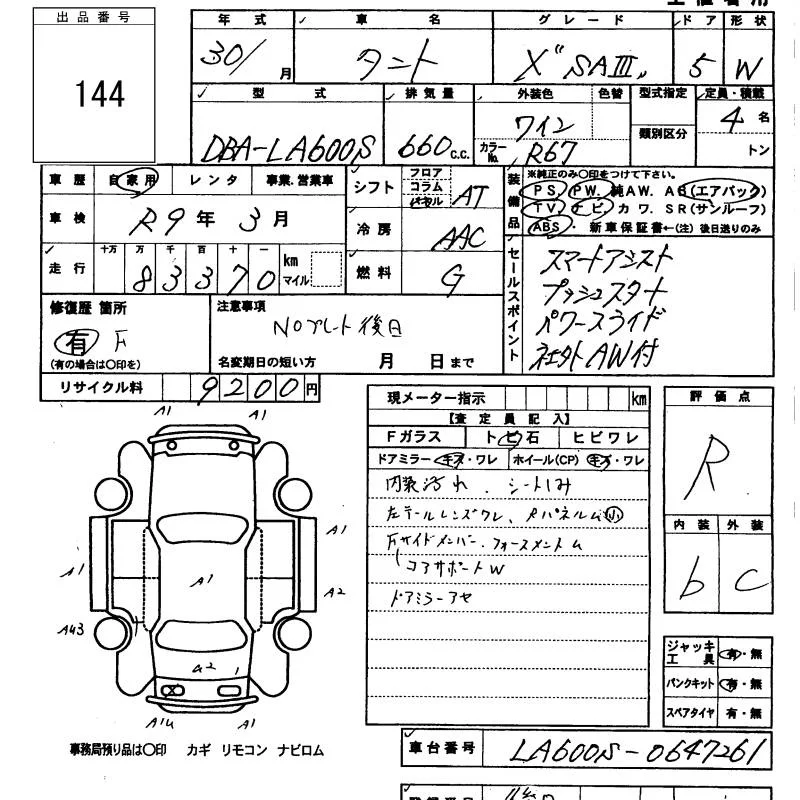 出品番号
144
年式 車名 グレード ドア 形状
30/ 月 タント X" SAIII" 5 W
型式 排気量 外装色 色替 型式指定 定員・積載
類別区分
DBA-LA600S 660 c.c. ワイン カラーNo. R67 4 名
トン
車歴 自家用 レンタ 事業.営業車
シフト フロア コラム パネル AT
車検 R9年 3月
冷房 AAC
走行 十万 万 千 百 十 一 km マイル
83370
燃料 G
装備品 ※純正のみ〇印をつけて下さい。
PS PW. 純AW. AB(エアバック)
TV ナビ カワ. SR(サンルーフ)
ABS ・ 新車保証書←(注) 後日送りのみ
セールスポイント
スマートアシスト
プッシュスタート
パワースライド
社外AW付
修復歴 箇所
有 F
(有の場合は〇印を)
注意事項
NOプレート後日
名変期日の短い方 月 日まで
リサイクル料 9200円
現メーター指示 km
【査定員記入】
Fガラス トビ石 ヒビワレ
ドアミラー キズ・ワレ ホイール(CP) キズ・ワレ
内装汚れ、シートしみ
左テールレンズワレ、Rパネルム小
Fサイドメンバー・フォースメントム
コアサポートW
ドアミラーアセ
評価点
R
内装 外装
b C
ジャッキ工具 有・無
パンクキット 有・無
スペアタイヤ 有・無
A1 A1
A1
A1 A1 A2
A43
A2
A14 A1
事務局預り品は〇印 カギ リモコン ナビロム
車台番号 LA600S-0647261